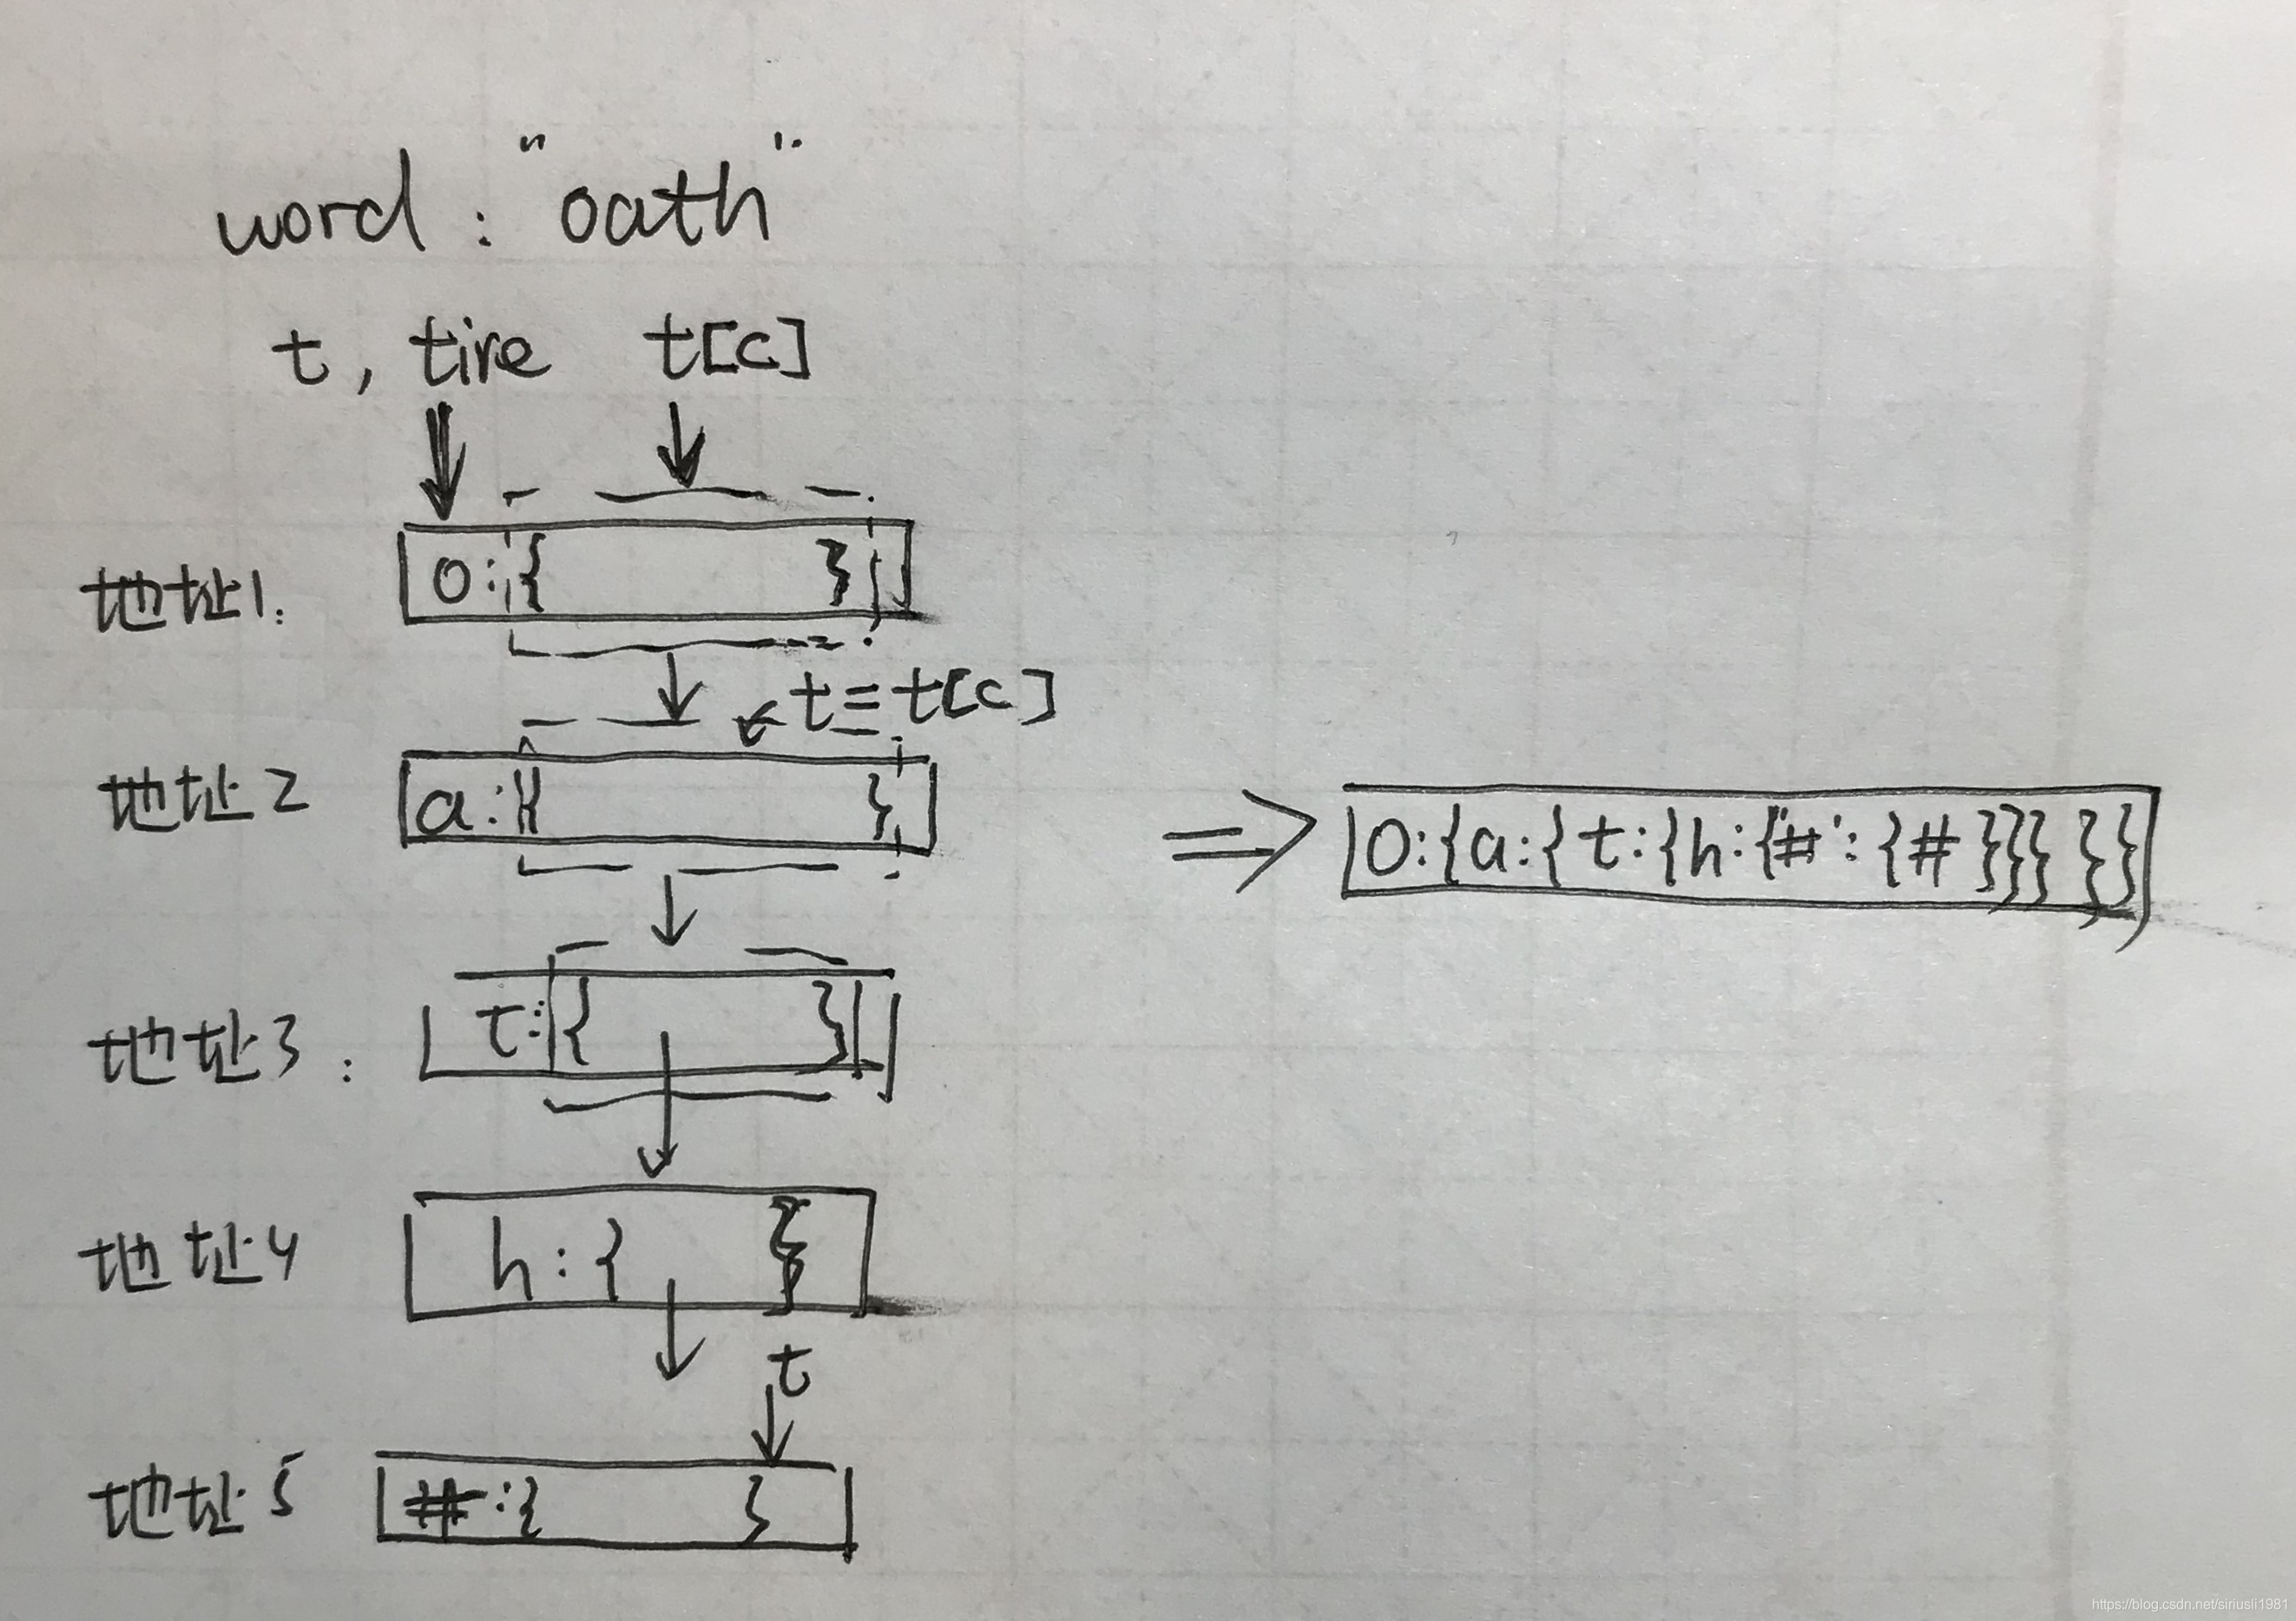 word : "oath"
t, tire t[c]
地址1: o:{ }
t = t[c]
地址2 a:{ }
=> o:{a:{t:{h:{"#":{#}}}}}}
地址3: t:{ }
地址4 h:{ }
t
地址5 #:{ }
https://blog.csdn.net/siriusli1981